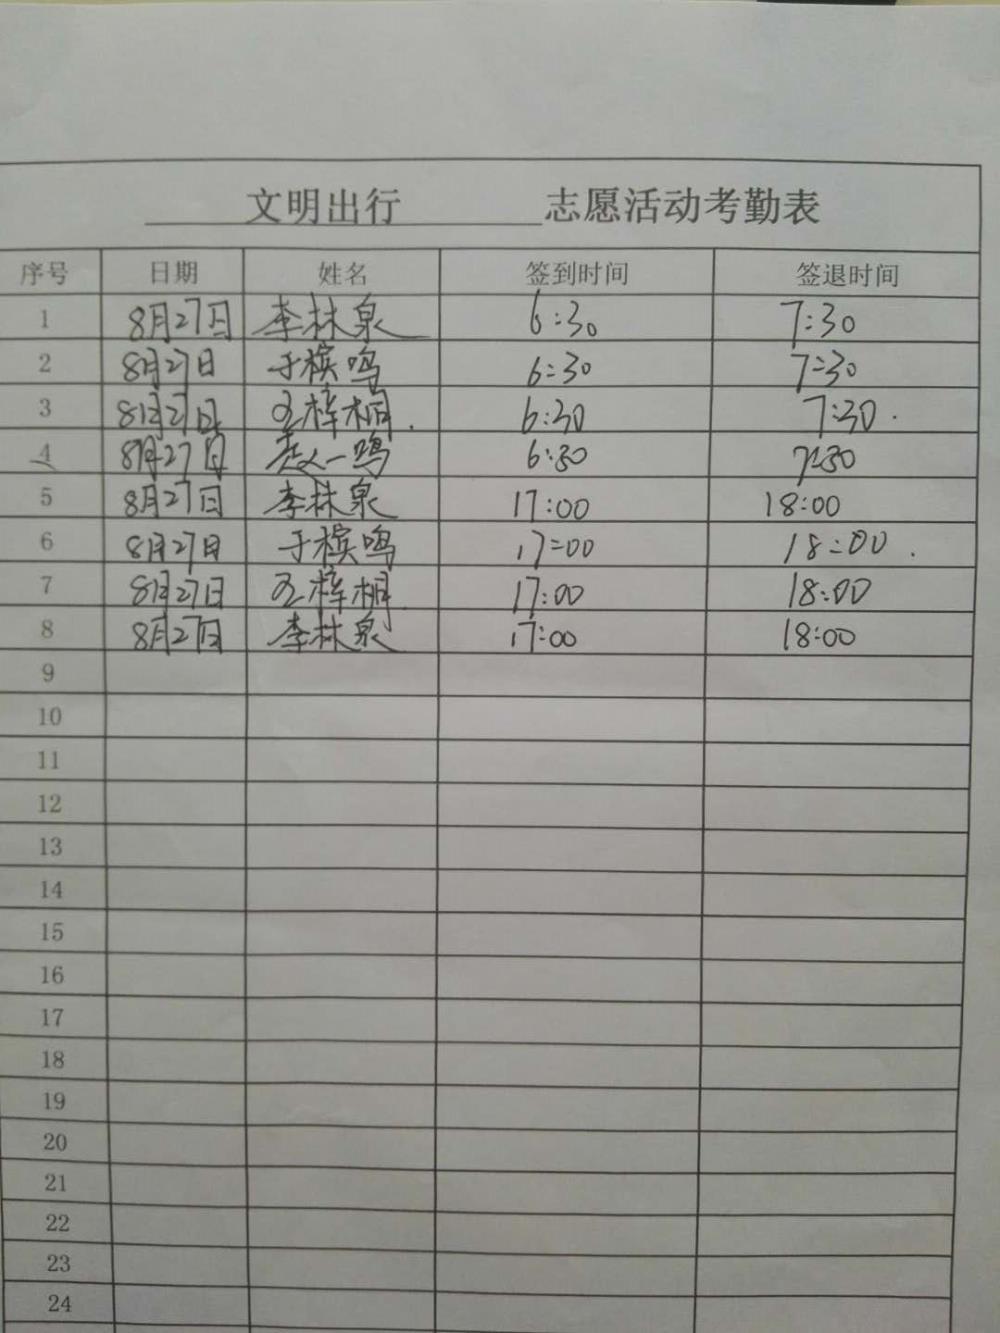 文明出行 志愿活动考勤表
序号 日期 姓名 签到时间 签退时间
1 8月27日 李林泉 6:30 7:30
2 8月27日 于槟鸣 6:30 7:30
3 8月27日 王梓桐. 6:30 7:30.
4 8月27日 一鸣 6:30 7:30
5 8月27日 李林泉 17:00 18:00
6 8月27日 于槟鸣 17:00 18:00.
7 8月27日 王梓桐 17:00 18:00
8 8月27日 李林泉 17:00 18:00
9
10
11
12
13
14
15
16
17
18
19
20
21
22
23
24